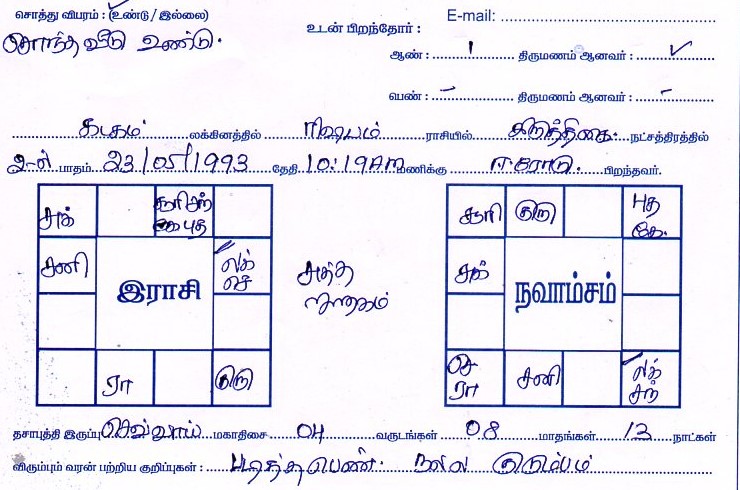 சொத்து விபரம் : (உண்டு / இல்லை)
சொந்த வீடு உண்டு.
உடன் பிறந்தோர் :
E-mail:
ஆண் : 1 திருமணம் ஆனவர் : ✓
பெண் : - திருமணம் ஆனவர் : -
கடகம் லக்கினத்தில் ரிஷபம் ராசியில் கிருத்திகை நட்சத்திரத்தில்
2-ம் பாதம் 23/05/1993 தேதி 10:19AM மணிக்கு ஈரோடு பிறந்தவர்.
சுக் சூரி சந் கே புத
சூரி குரு புத கே.
சனி லக் செ
சுக்
இராசி
சுத்த ஜாதகம்
நவாம்சம்
ரா குரு
செ ரா சனி லக் சந்
தசாபுத்தி இருப்பு செவ்வாய் மகாதிசை 04 வருடங்கள் 08 மாதங்கள் 13 நாட்கள்
விரும்பும் வரன் பற்றிய குறிப்புகள் : படித்த பெண். நல்ல குடும்பம்